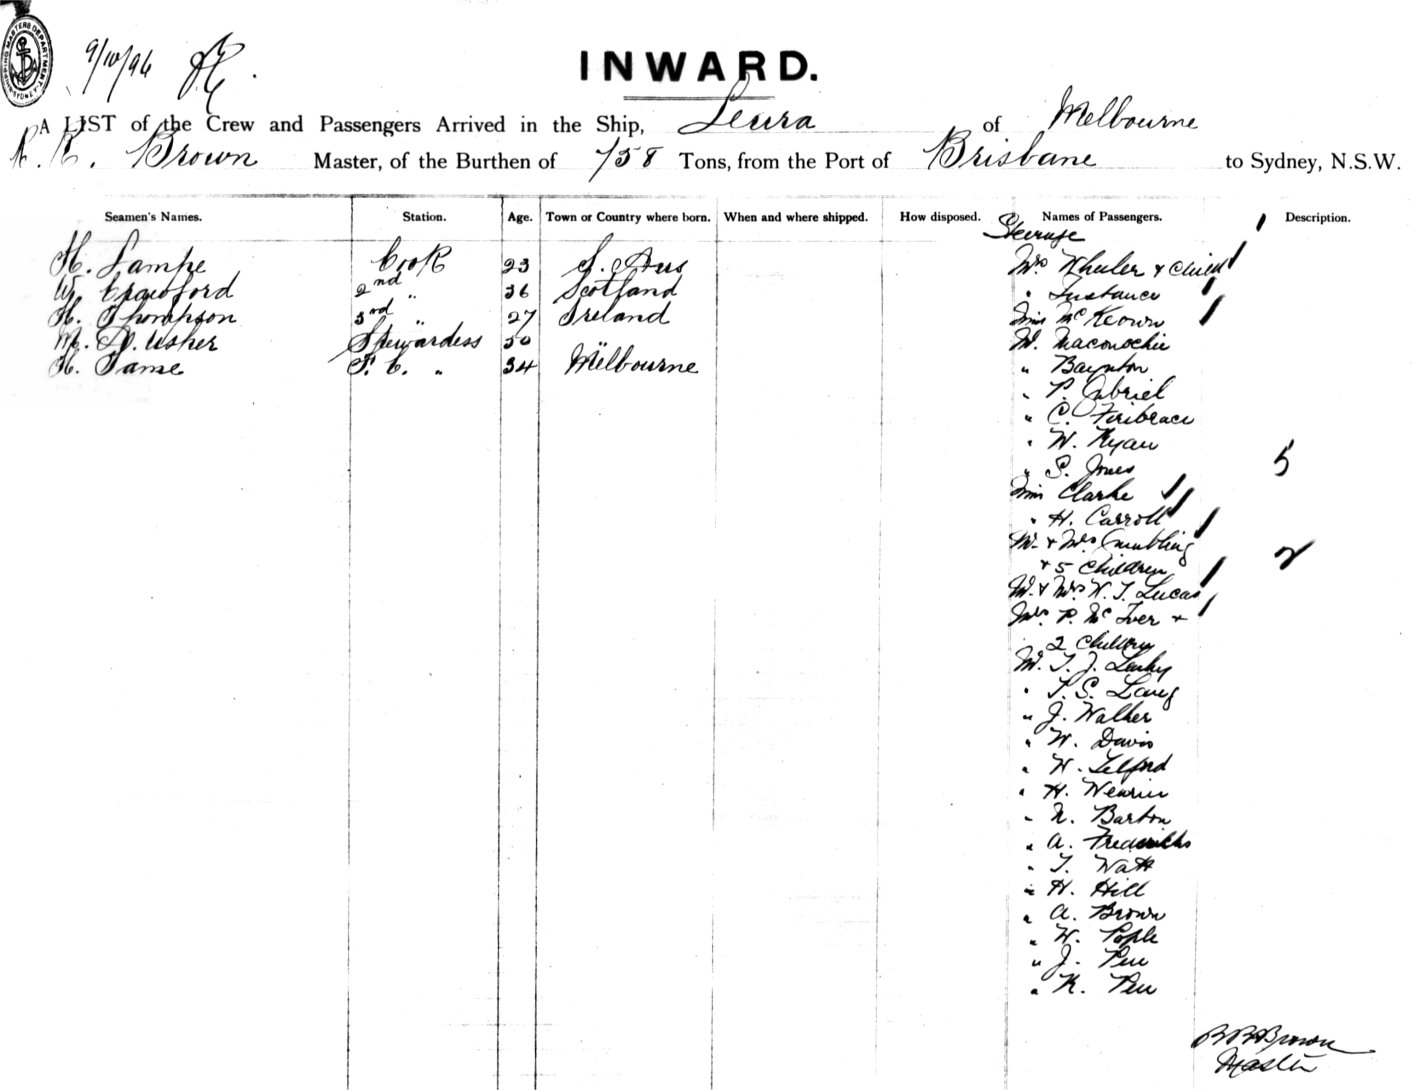 SHIPPING MASTERS DEPARTMENT
SYDNEY
9/10/96
INWARD.
A LIST of the Crew and Passengers Arrived in the Ship, Leura of Melbourne
Brown Master, of the Burthen of 758 Tons, from the Port of Brisbane to Sydney, N.S.W.
Seamen's Names. Station. Age. Town or Country where born. When and where shipped. How disposed. Names of Passengers. Description.
Steerage
H. Lampe Cook 23 S. Aus
W. Crawford 2nd " 36 Scotland
H. Thompson 3rd " 27 Ireland
M. A. Usher Stewardess 30 "
H. Tame F. C. " 34 Melbourne
Mrs Wheeler & Child
" Instance
Miss McKeown
Mr. Maconochie
" Baynton
" P. Gabriel
" C. Firibrace
" W. Ryan
" S. Jones
5
Miss Clarke
" H. Carroll
Mr & Mrs
& 5 Children
2
Mr & Mrs W. T. Lucas
Mrs. P. McIver &
2 Children
Mr. T. J.
" T. S. Lang
" J. Walker
" W. Davis
" W. Telford
" H.
" N. Barton
" A. Fredericks
" T. Watt
" H. Hill
" A. Brown
" W. Pople
" J.
" K.
Brown
Master